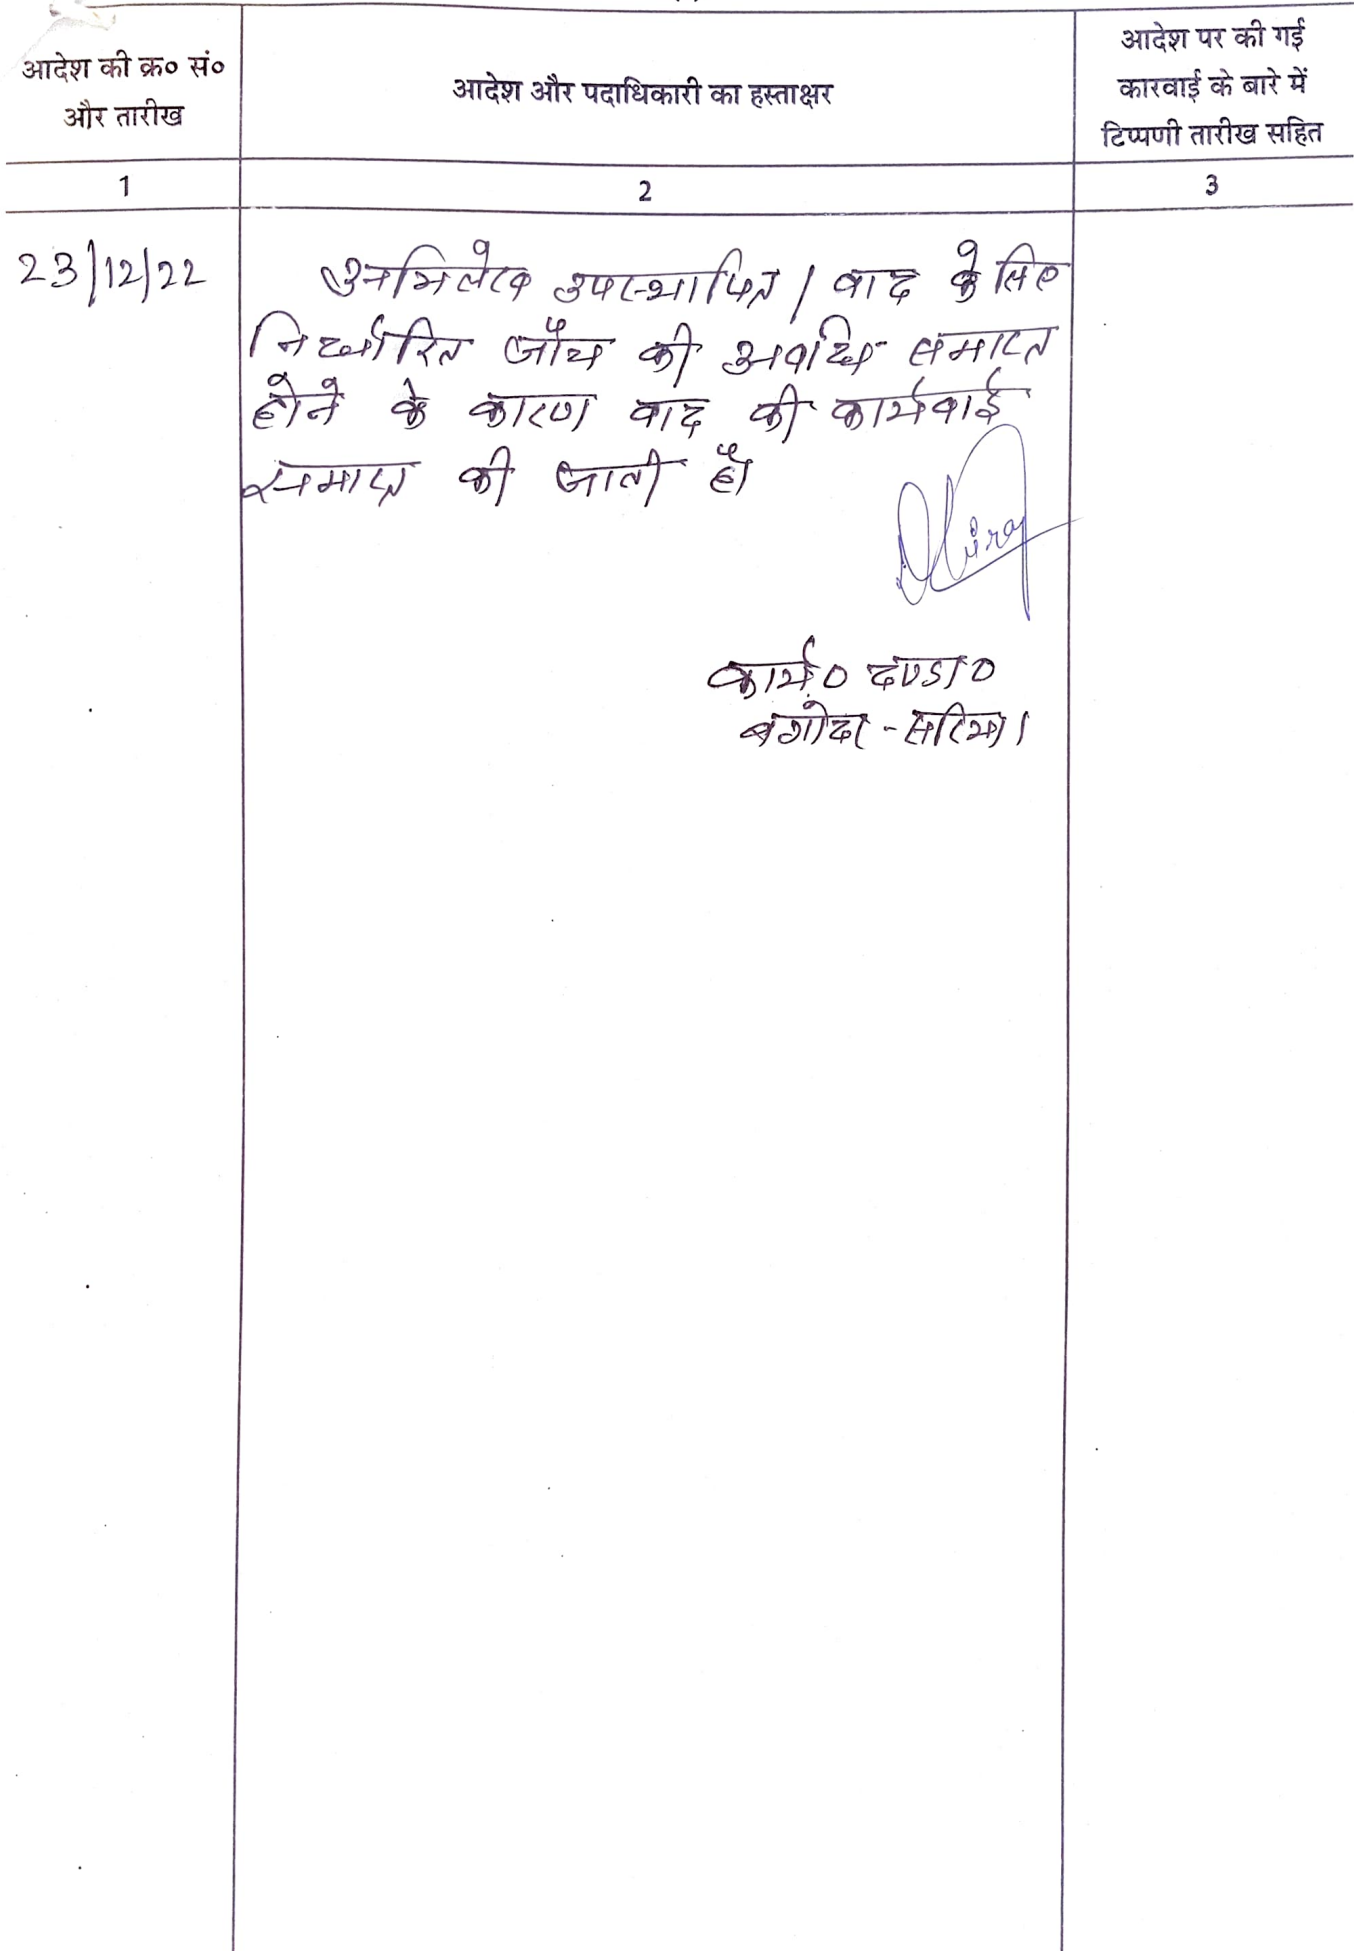 आदेश की क्र० सं०
और तारीख
आदेश और पदाधिकारी का हस्ताक्षर
आदेश पर की गई
कारवाई के बारे में
टिप्पणी तारीख सहित
1
2
3
23/12/22
अभिलेख उपस्थापित। वाद के लिए
निर्धारित जाँच की अवधि समाप्त
होने के कारण वाद की कार्यवाई
समाप्त की जाती है।
कार्य० दण्डा०
बगोदर - सरिया।